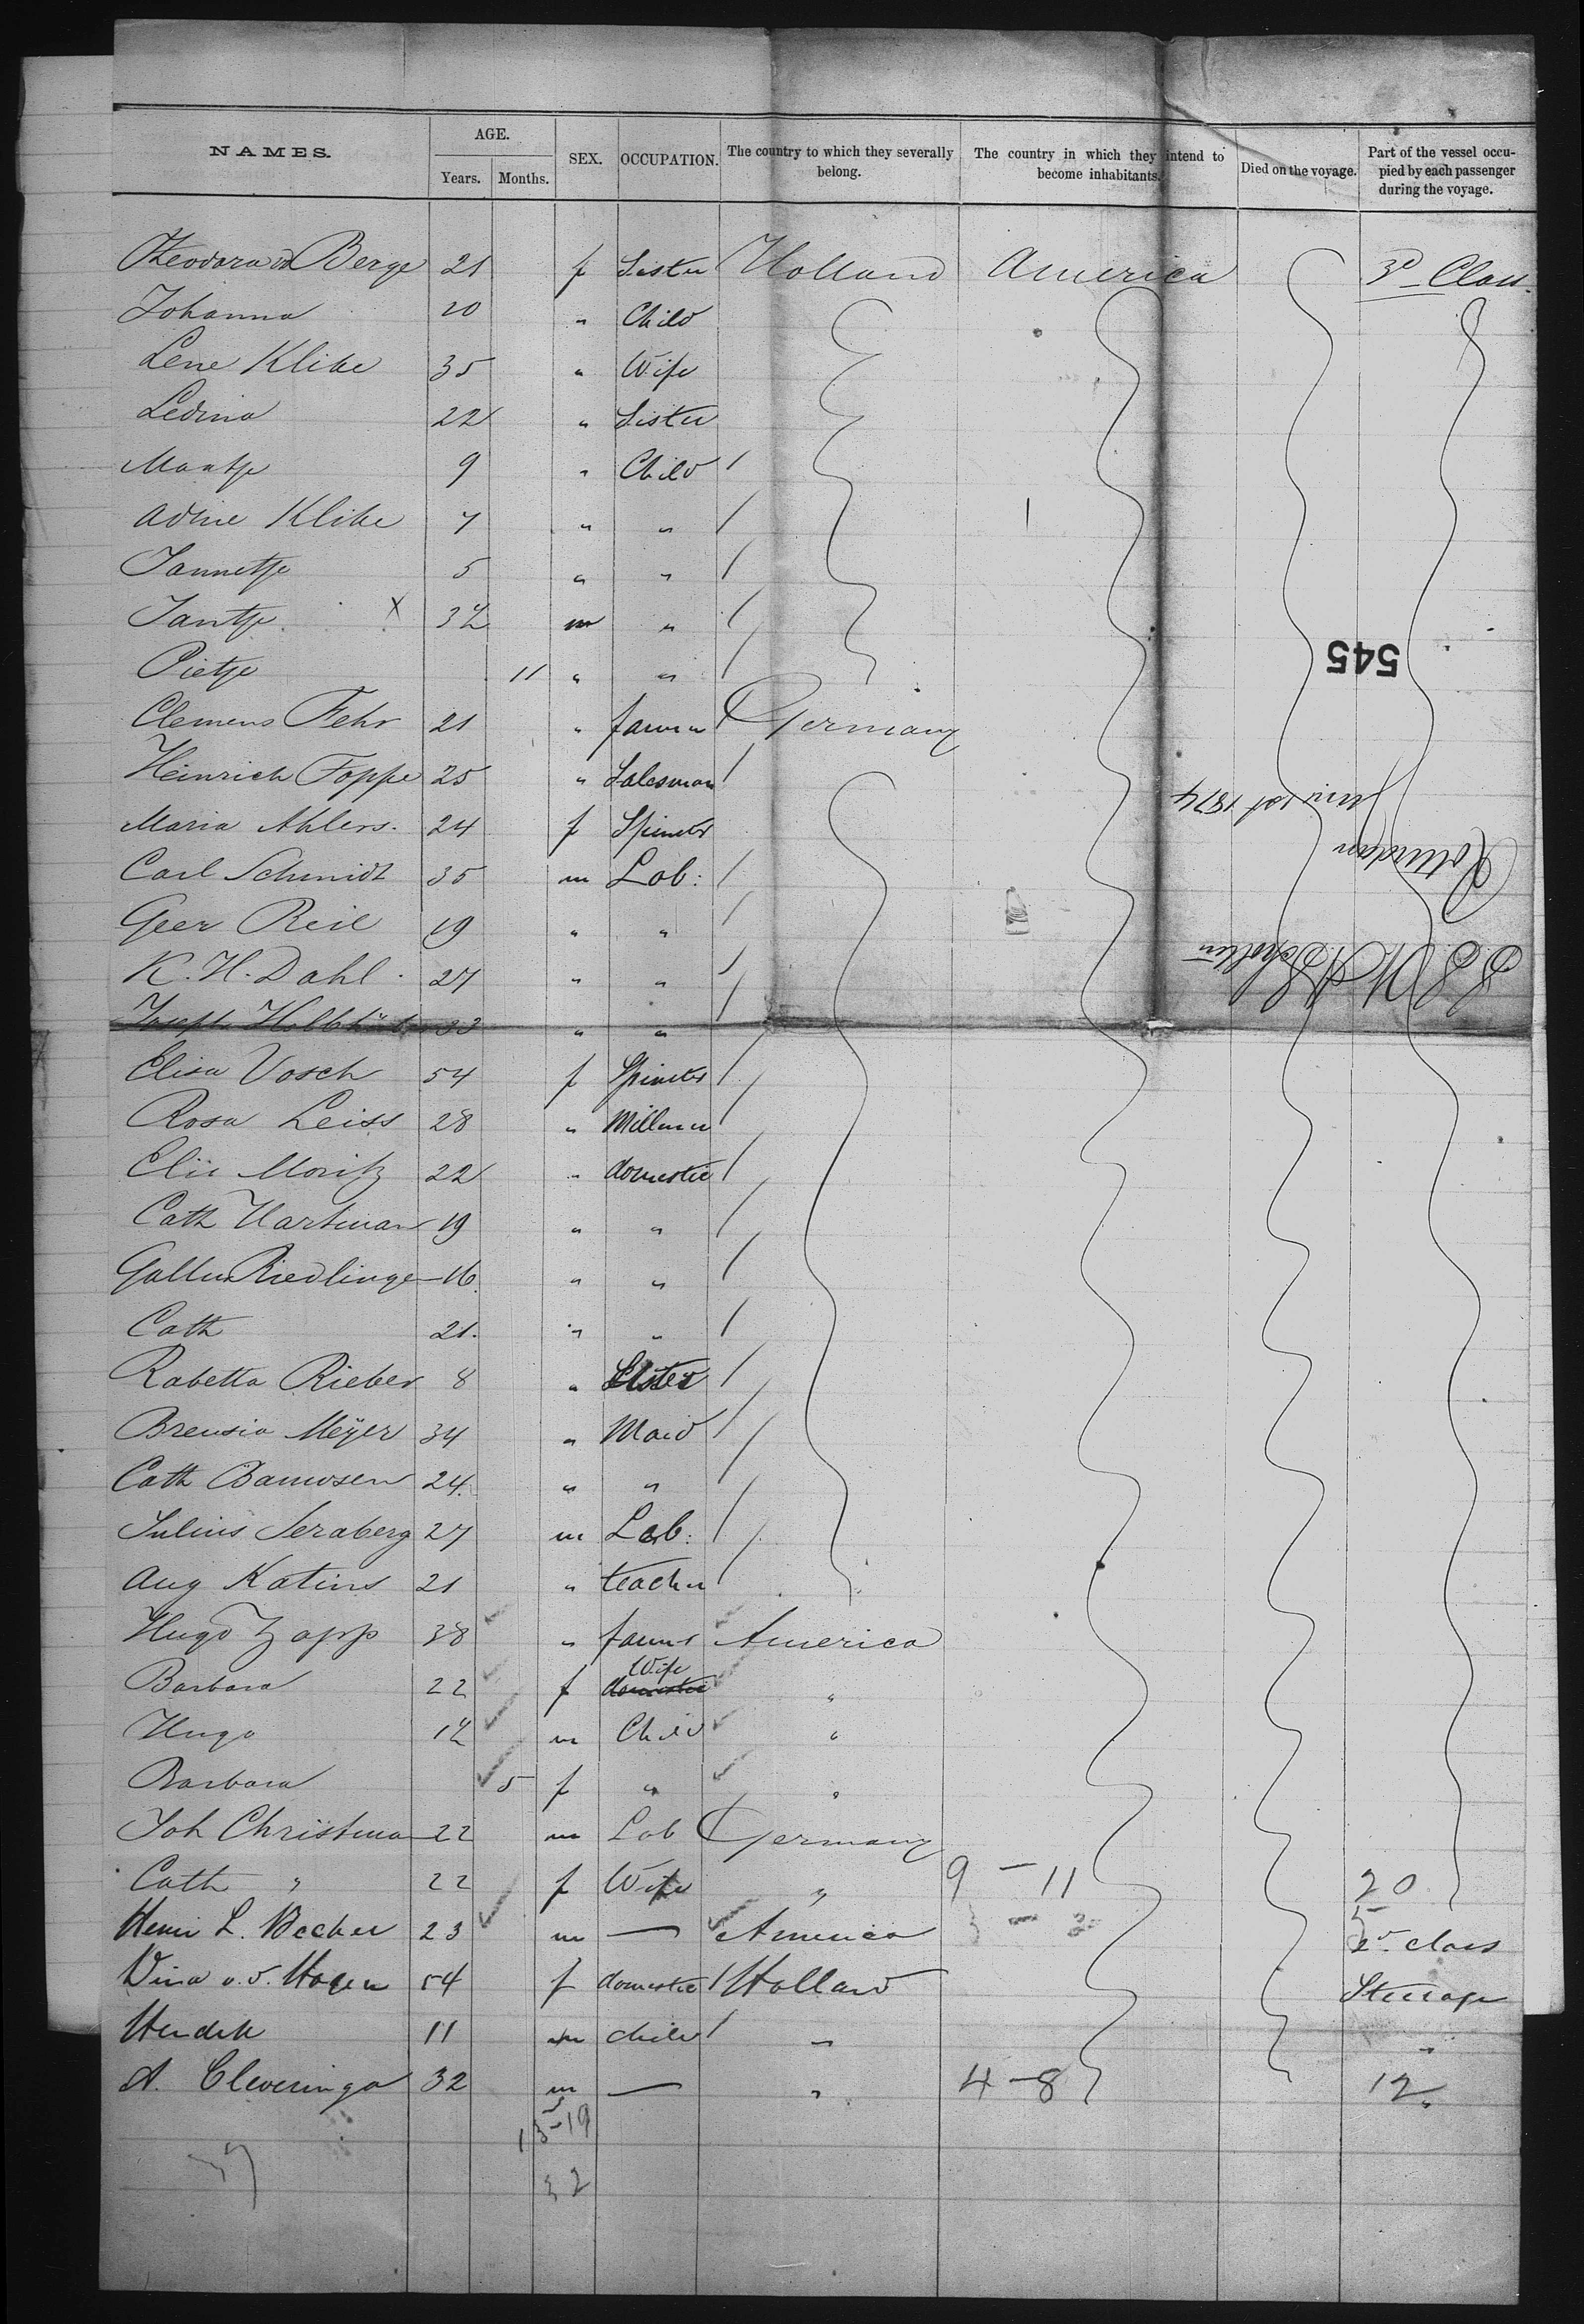 NAMES. AGE. Years. Months. SEX. OCCUPATION. The country to which they severally belong. The country in which they intend to become inhabitants. Died on the voyage. Part of the vessel occupied by each passenger during the voyage.
Theodora vd Berge 21 f Sister Holland America 3d Class.
Johanna 10 " Child
Lene Klibe 35 " Wife
Ledina 22 " Sister
Maatje 9 " Child
Adine Klibe 7 " "
Jannetje 5 " "
Jantje X 3 1/2 m "
Pietje 11 " "
545
Clemens Fehr 21 " farmer Germany
Heinrich Foppe 25 " Salesman
Maria Ahlers. 24 f Spinster
Carl Schmidt 35 m Lab:
Geer Reil 19 " "
K. H. Dahl 27 " "
S.S. W. A. Scholten
Rotterdam
Juni 1st 1874
Joseph 33 " "
Elisa Vosch 54 f Spinster
Rosa Leiss 28 " Milliner
Elis Moritz 22 " domestic
Cath Hartman 19 " "
Gallus Riedlinge 16 " "
Cath 21 " "
Rabetta Rieber 8 " Sister
Breusia Meÿer 34 " Maid
Cath 24 " "
Julius Seraberg 27 m Lab:
Aug Katins 21 " teacher
Hugo Zapp 38 " farmer America
Barbara 22 f Wife domestic "
Hugo 1 1/2 m Child "
Barbara 5 f " "
Joh Christma 22 m Lab Germany
Cath " 22 f Wife " 9 - 11 20
Henri L. Becker 23 m — America 2d class
Dina v. d. Hagen 54 f domestic Holland Steerage
Hendrik 11 m child " "
A. Cleveringa 32 m — " 4-8 12
13-19
32
37